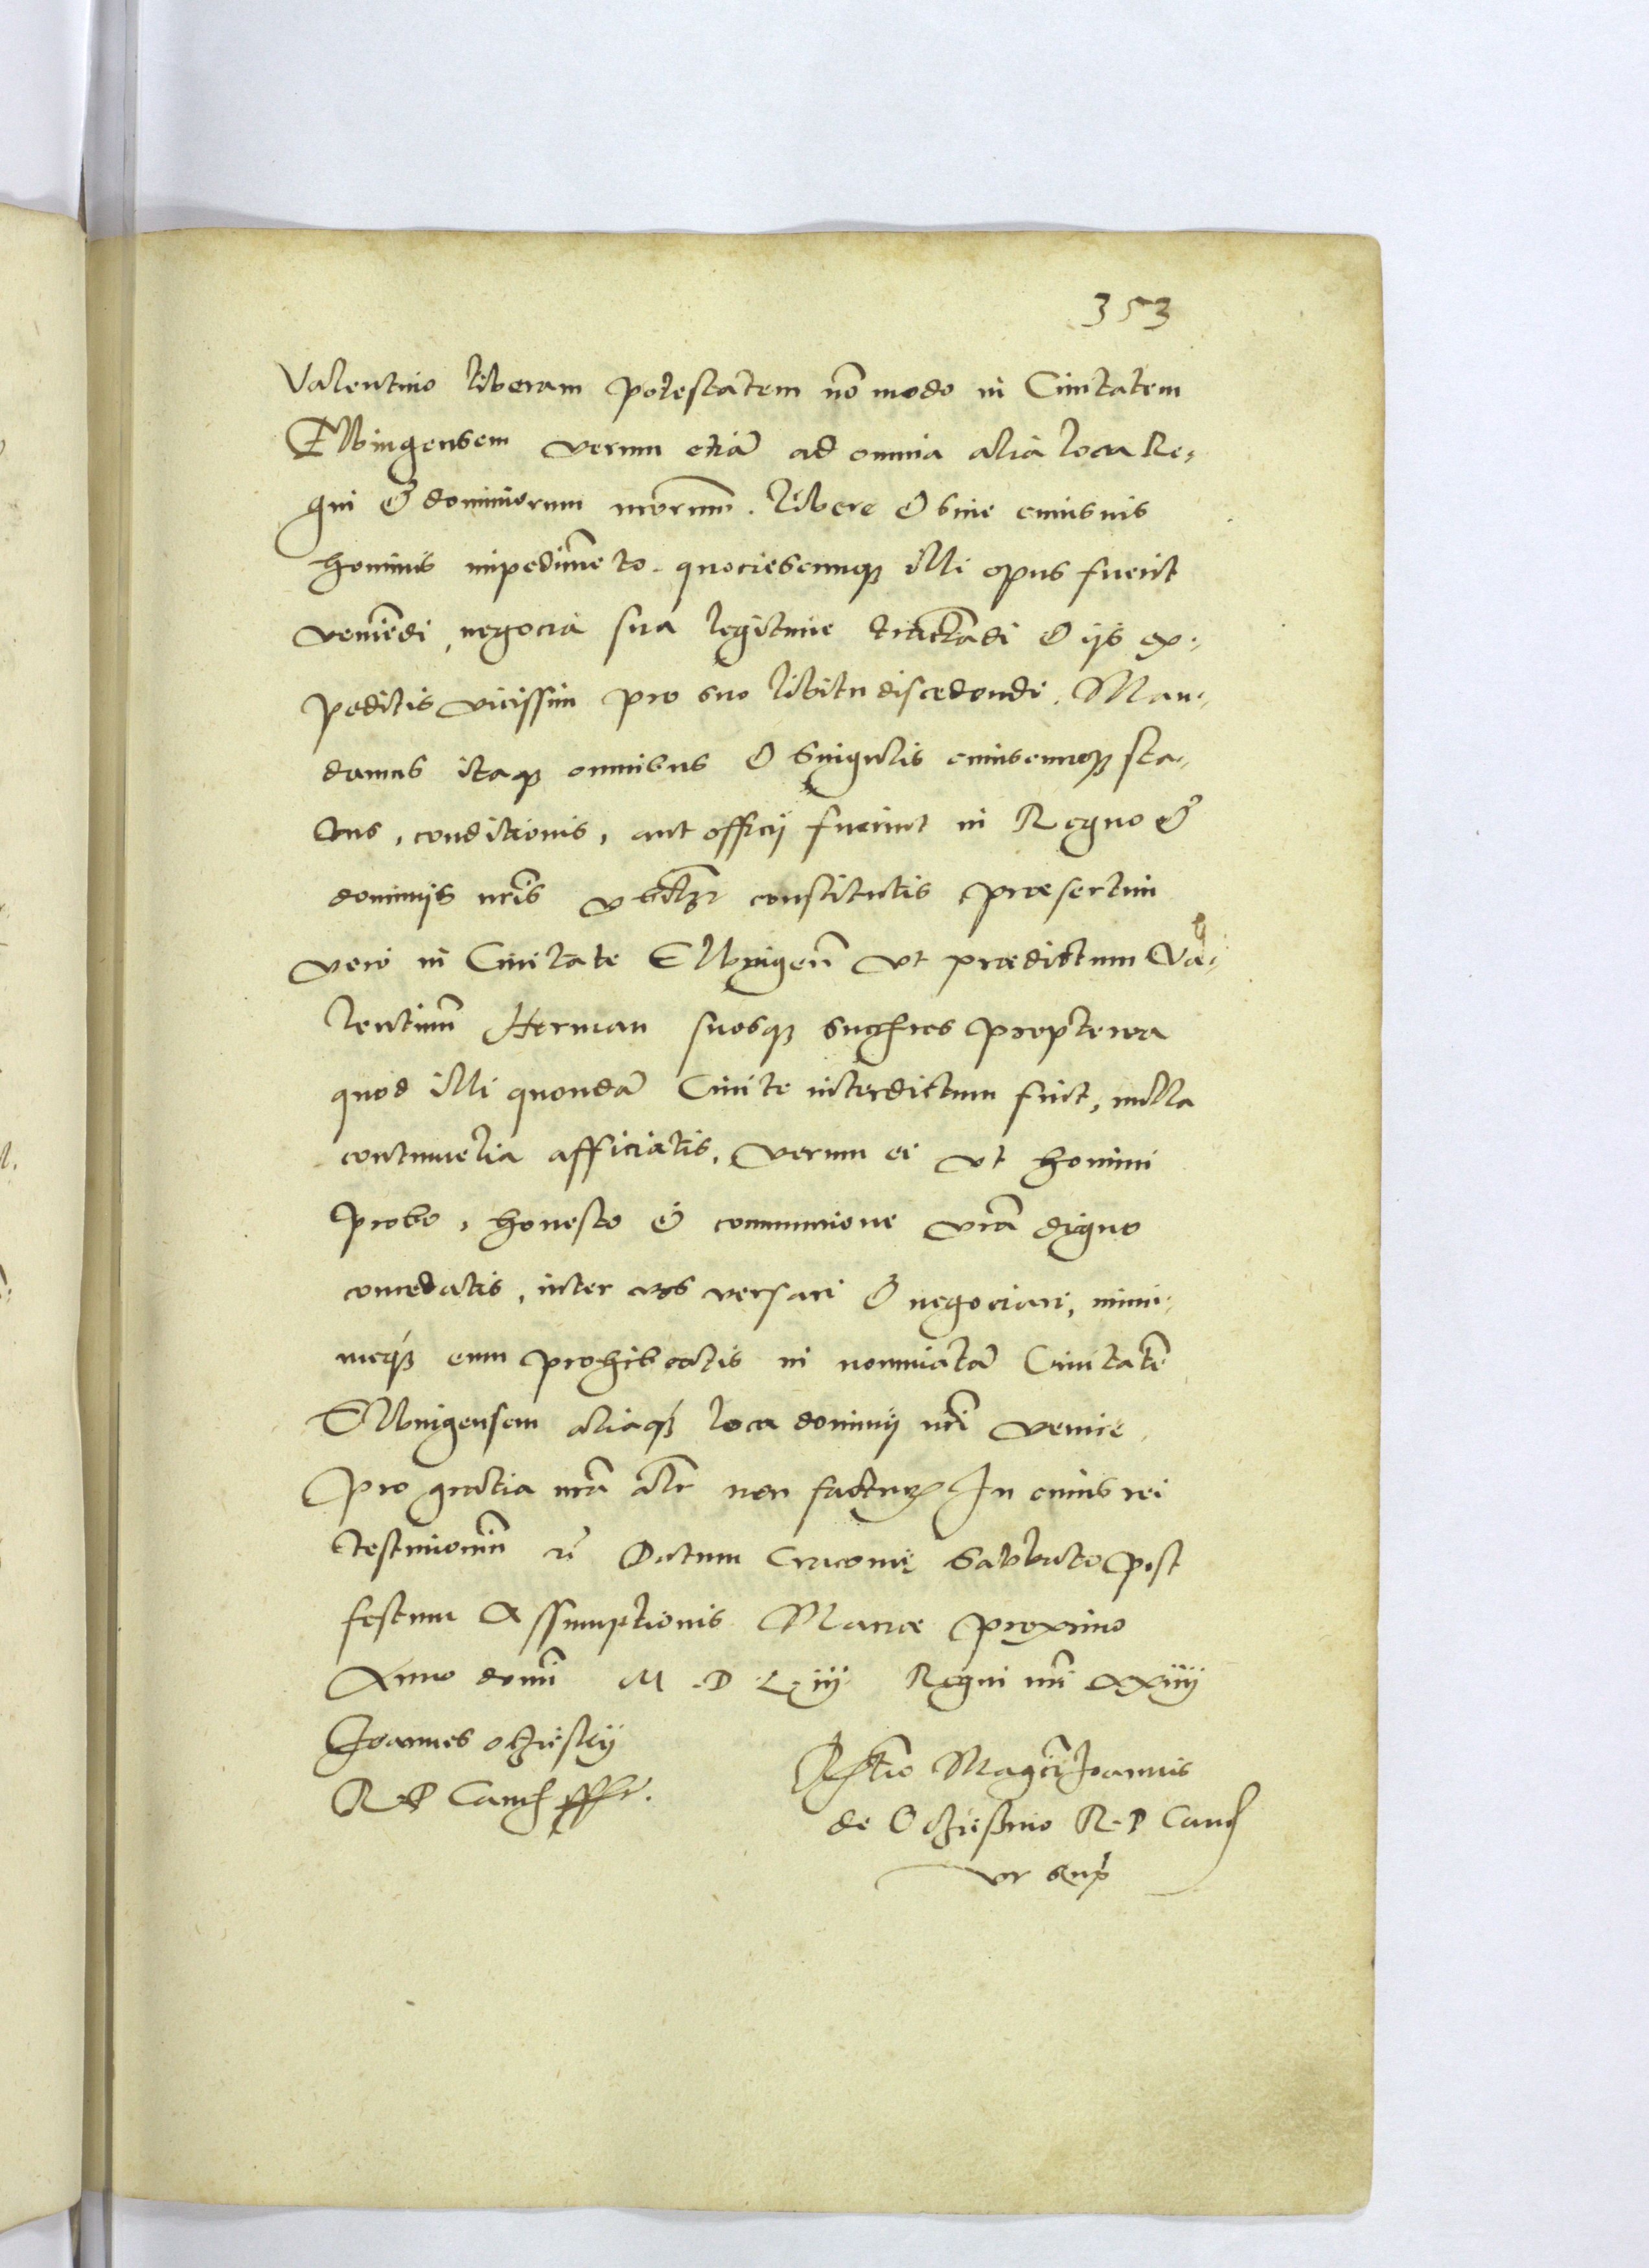 353
Valentino liberam potestatem nõ modo in Ciuitatem
Elbingensem verum etiã ad omnia alia loca Re-
gni & dominiorum nrorum̃. libere & sine cuiusuis
hominis impedimẽto. quociescunq3 illi opus fuerit
veniẽdi, negocia sua legitime tractãdi & ijs ex-
peditis vicissim pro suo libitu discedendi. Man-
damus itaq3 omnibus & singulis cuiuscunq3 sta-
tus, conditionis, aut officij fuerint in Regno &
dominijs nrĩs constitutis praesertim
vero in Ciuitate Elbingeñ vt praedictum Va-
lentinũ Herman suosq3 propterea
quod illi quondã Ciuite interdictum fuit, nulla
contumelia afficiatis, verum ei vt homini
probo, honesto & communione vrã digno
concedatis, inter vos versari & negociari, mini-
meq3 eum prohibeatis in nominatã Ciuitatẽ
Elbingensem aliaq3 loca dominij nrĩ venire,
Pro gratia nrã alr̃ non factur In cuius rei
testimoniũ rc̃ Datum Cracouię Sabbato post
festum Assumptionis Mariae proximo
Anno domĩ M.D.L.iij Regni nrĩ xxiiij
Joannes Oczieskij
R.P. Canc. sssr.
Rl̃tio Magcĩ Joannis
de Oczießino R.P. Canc
vt sup